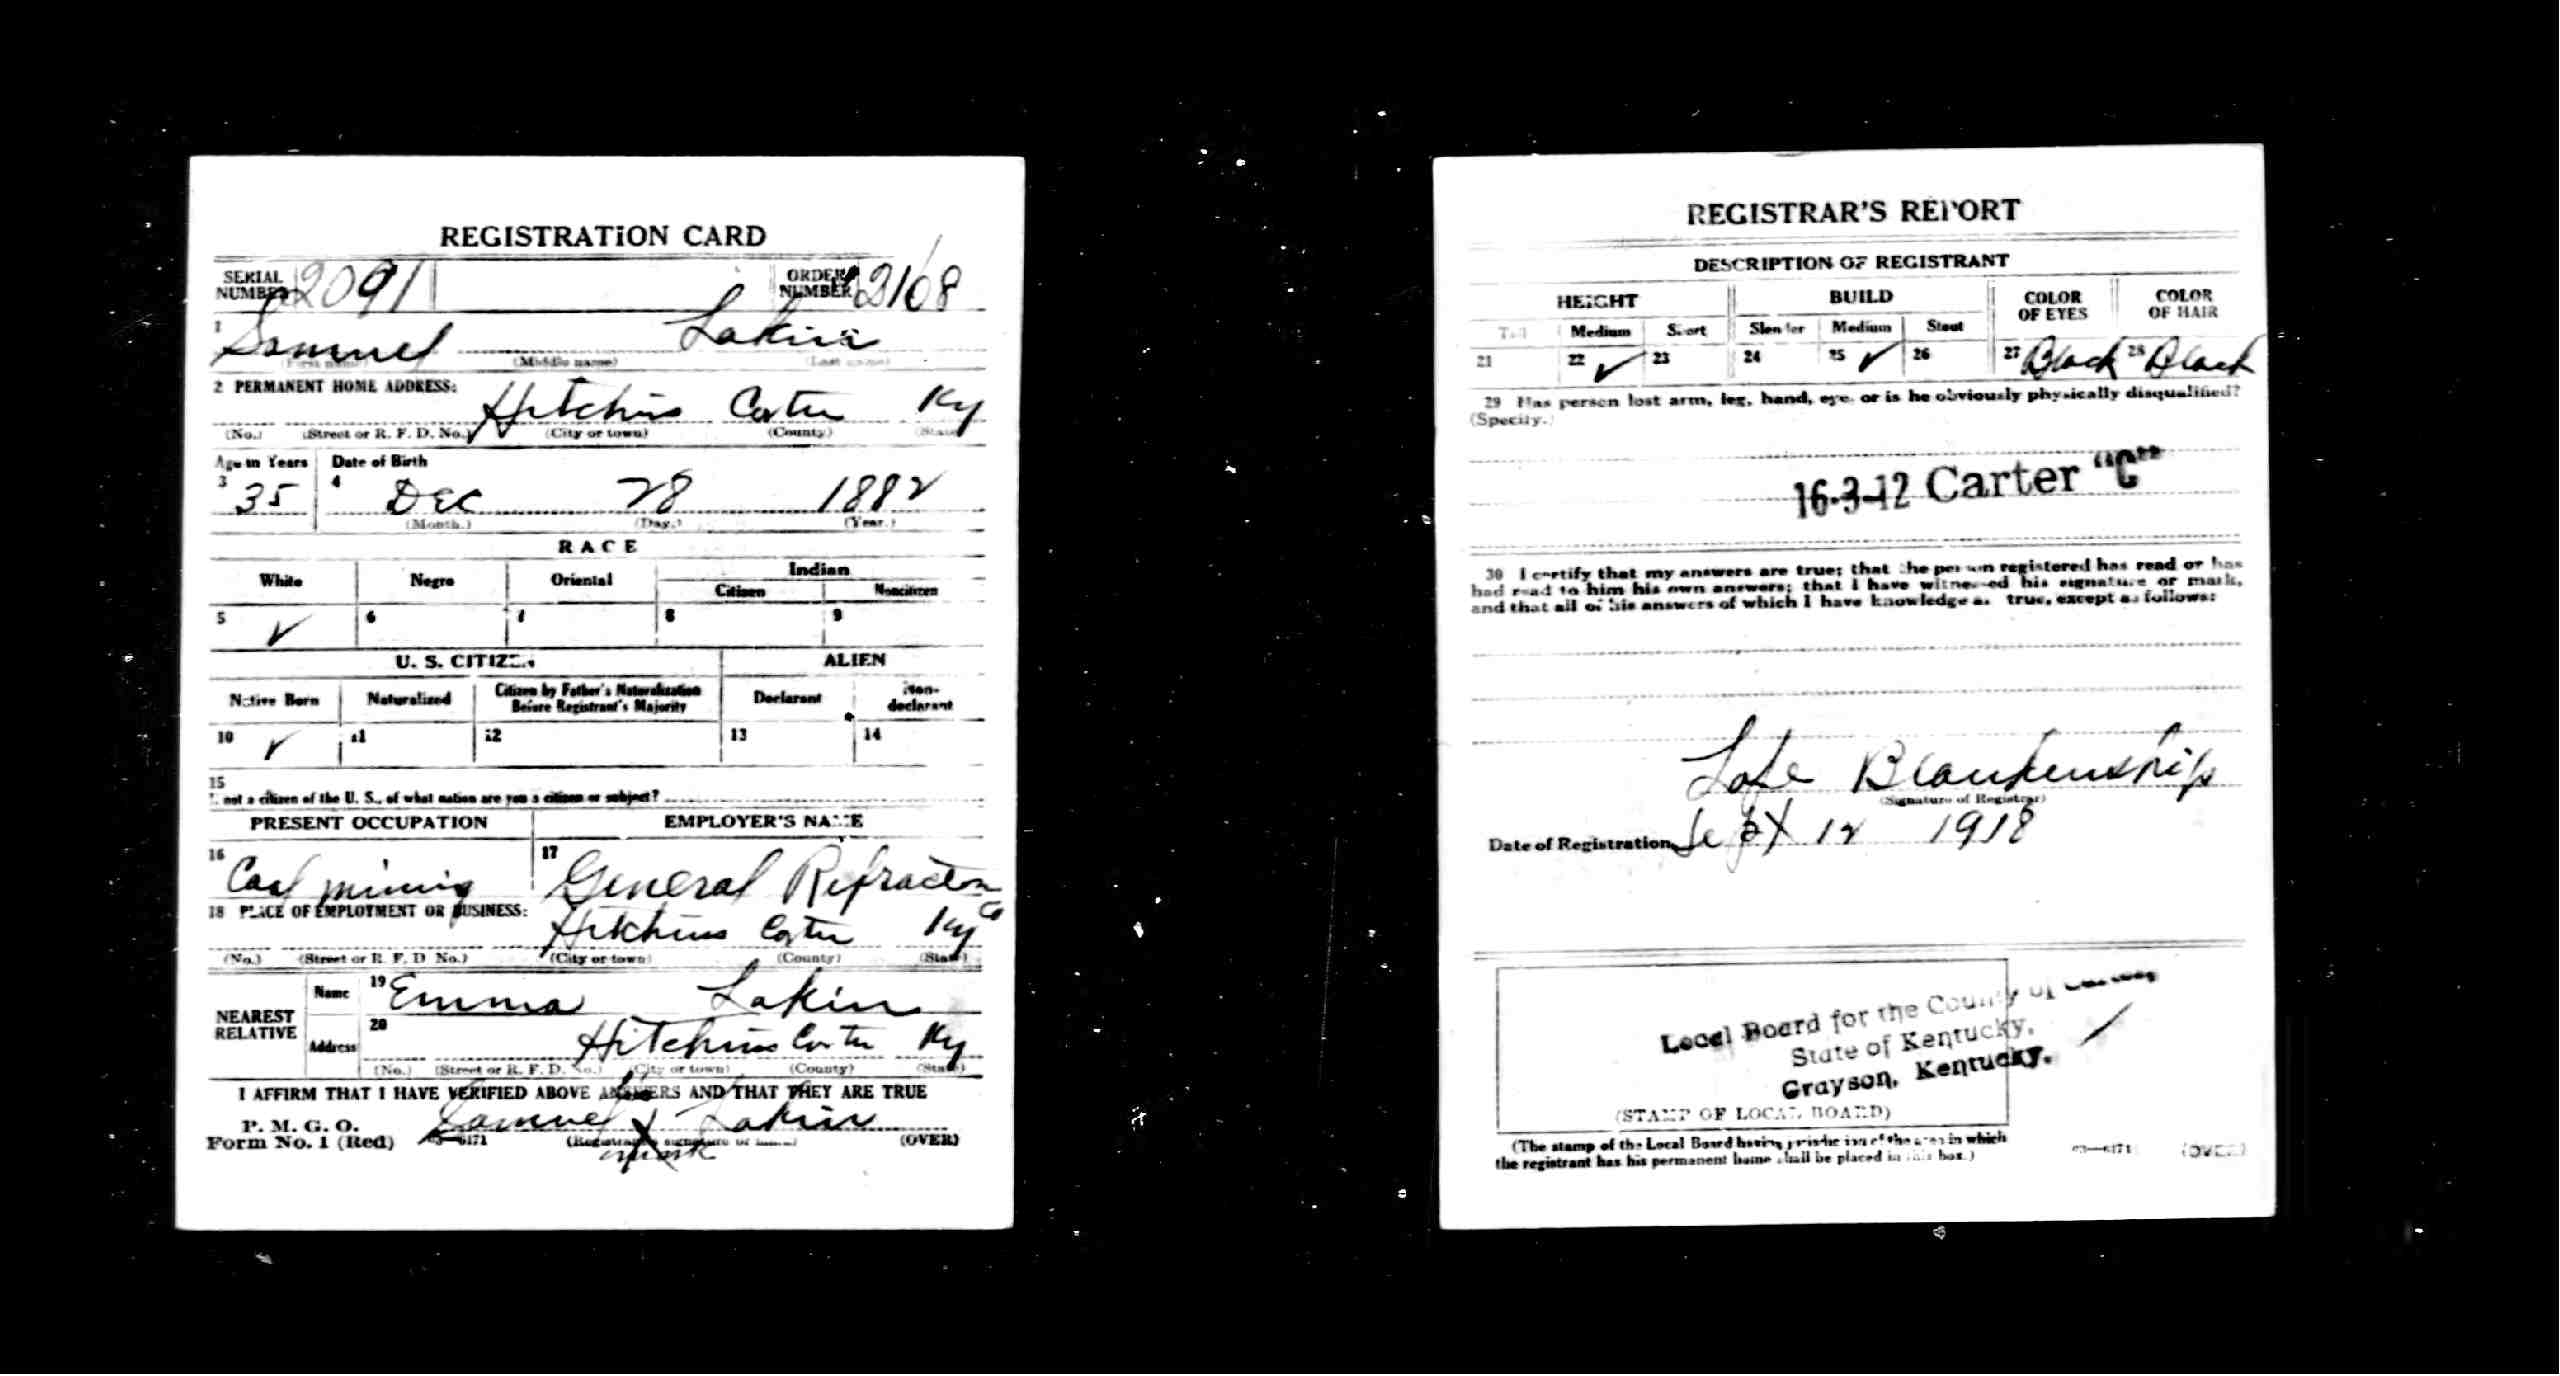 REGISTRATION CARD
SERIAL NUMBER 2091 ORDER NUMBER 2108
1 Samuel Lakin
(First name) (Middle name) (Last name)
2 PERMANENT HOME ADDRESS:
Hitchins Carter Ky
(No.) (Street or R. F. D. No.) (City or town) (County) (State)
Age in Years Date of Birth
3 35 4 Dec 28 1882
(Month.) (Day.) (Year.)
RACE
White Negro Oriental Indian
Citizen Noncitizen
5 ✓ 6 7 8 9
U. S. CITIZEN ALIEN
Native Born Naturalized Citizen by Father's Naturalization Before Registrant's Majority Declarant Non-declarant
10 ✓ 11 12 13 14
15
If not a citizen of the U. S., of what nation are you a citizen or subject?
PRESENT OCCUPATION EMPLOYER'S NAME
16 Coal mining 17 General Refractory Co
18 PLACE OF EMPLOYMENT OR BUSINESS:
Hitchins Carter Ky
(No.) (Street or R. F. D. No.) (City or town) (County) (State)
NEAREST RELATIVE Name 19 Emma Lakin
Address 20 Hitchins Carter Ky
(No.) (Street or R. F. D. No.) (City or town) (County) (State)
I AFFIRM THAT I HAVE VERIFIED ABOVE ANSWERS AND THAT THEY ARE TRUE
P. M. G. O.
Form No. 1 (Red) Samuel X Lakin
03—6171 (Registrant's signature or mark) (OVER)
mark
REGISTRAR'S REPORT
DESCRIPTION OF REGISTRANT
HEIGHT BUILD COLOR OF EYES COLOR OF HAIR
Tall Medium Short Slender Medium Stout
21 22 ✓ 23 24 25 ✓ 26 27 Black 28 Black
29 Has person lost arm, leg, hand, eye, or is he obviously physically disqualified?
(Specify.)
16-3-12 Carter "C"
30 I certify that my answers are true; that the person registered has read or has
had read to him his own answers; that I have witnessed his signature or mark,
and that all of his answers of which I have knowledge are true, except as follows:
Blankenship
(Signature of Registrar)
Date of Registration Sept 12 1918
Local Board for the County of Carter,
State of Kentucky,
Grayson, Kentucky.
(STAMP OF LOCAL BOARD)
(The stamp of the Local Board having jurisdiction of the area in which
the registrant has his permanent home shall be placed in this box.)
03—6171 (OVER)